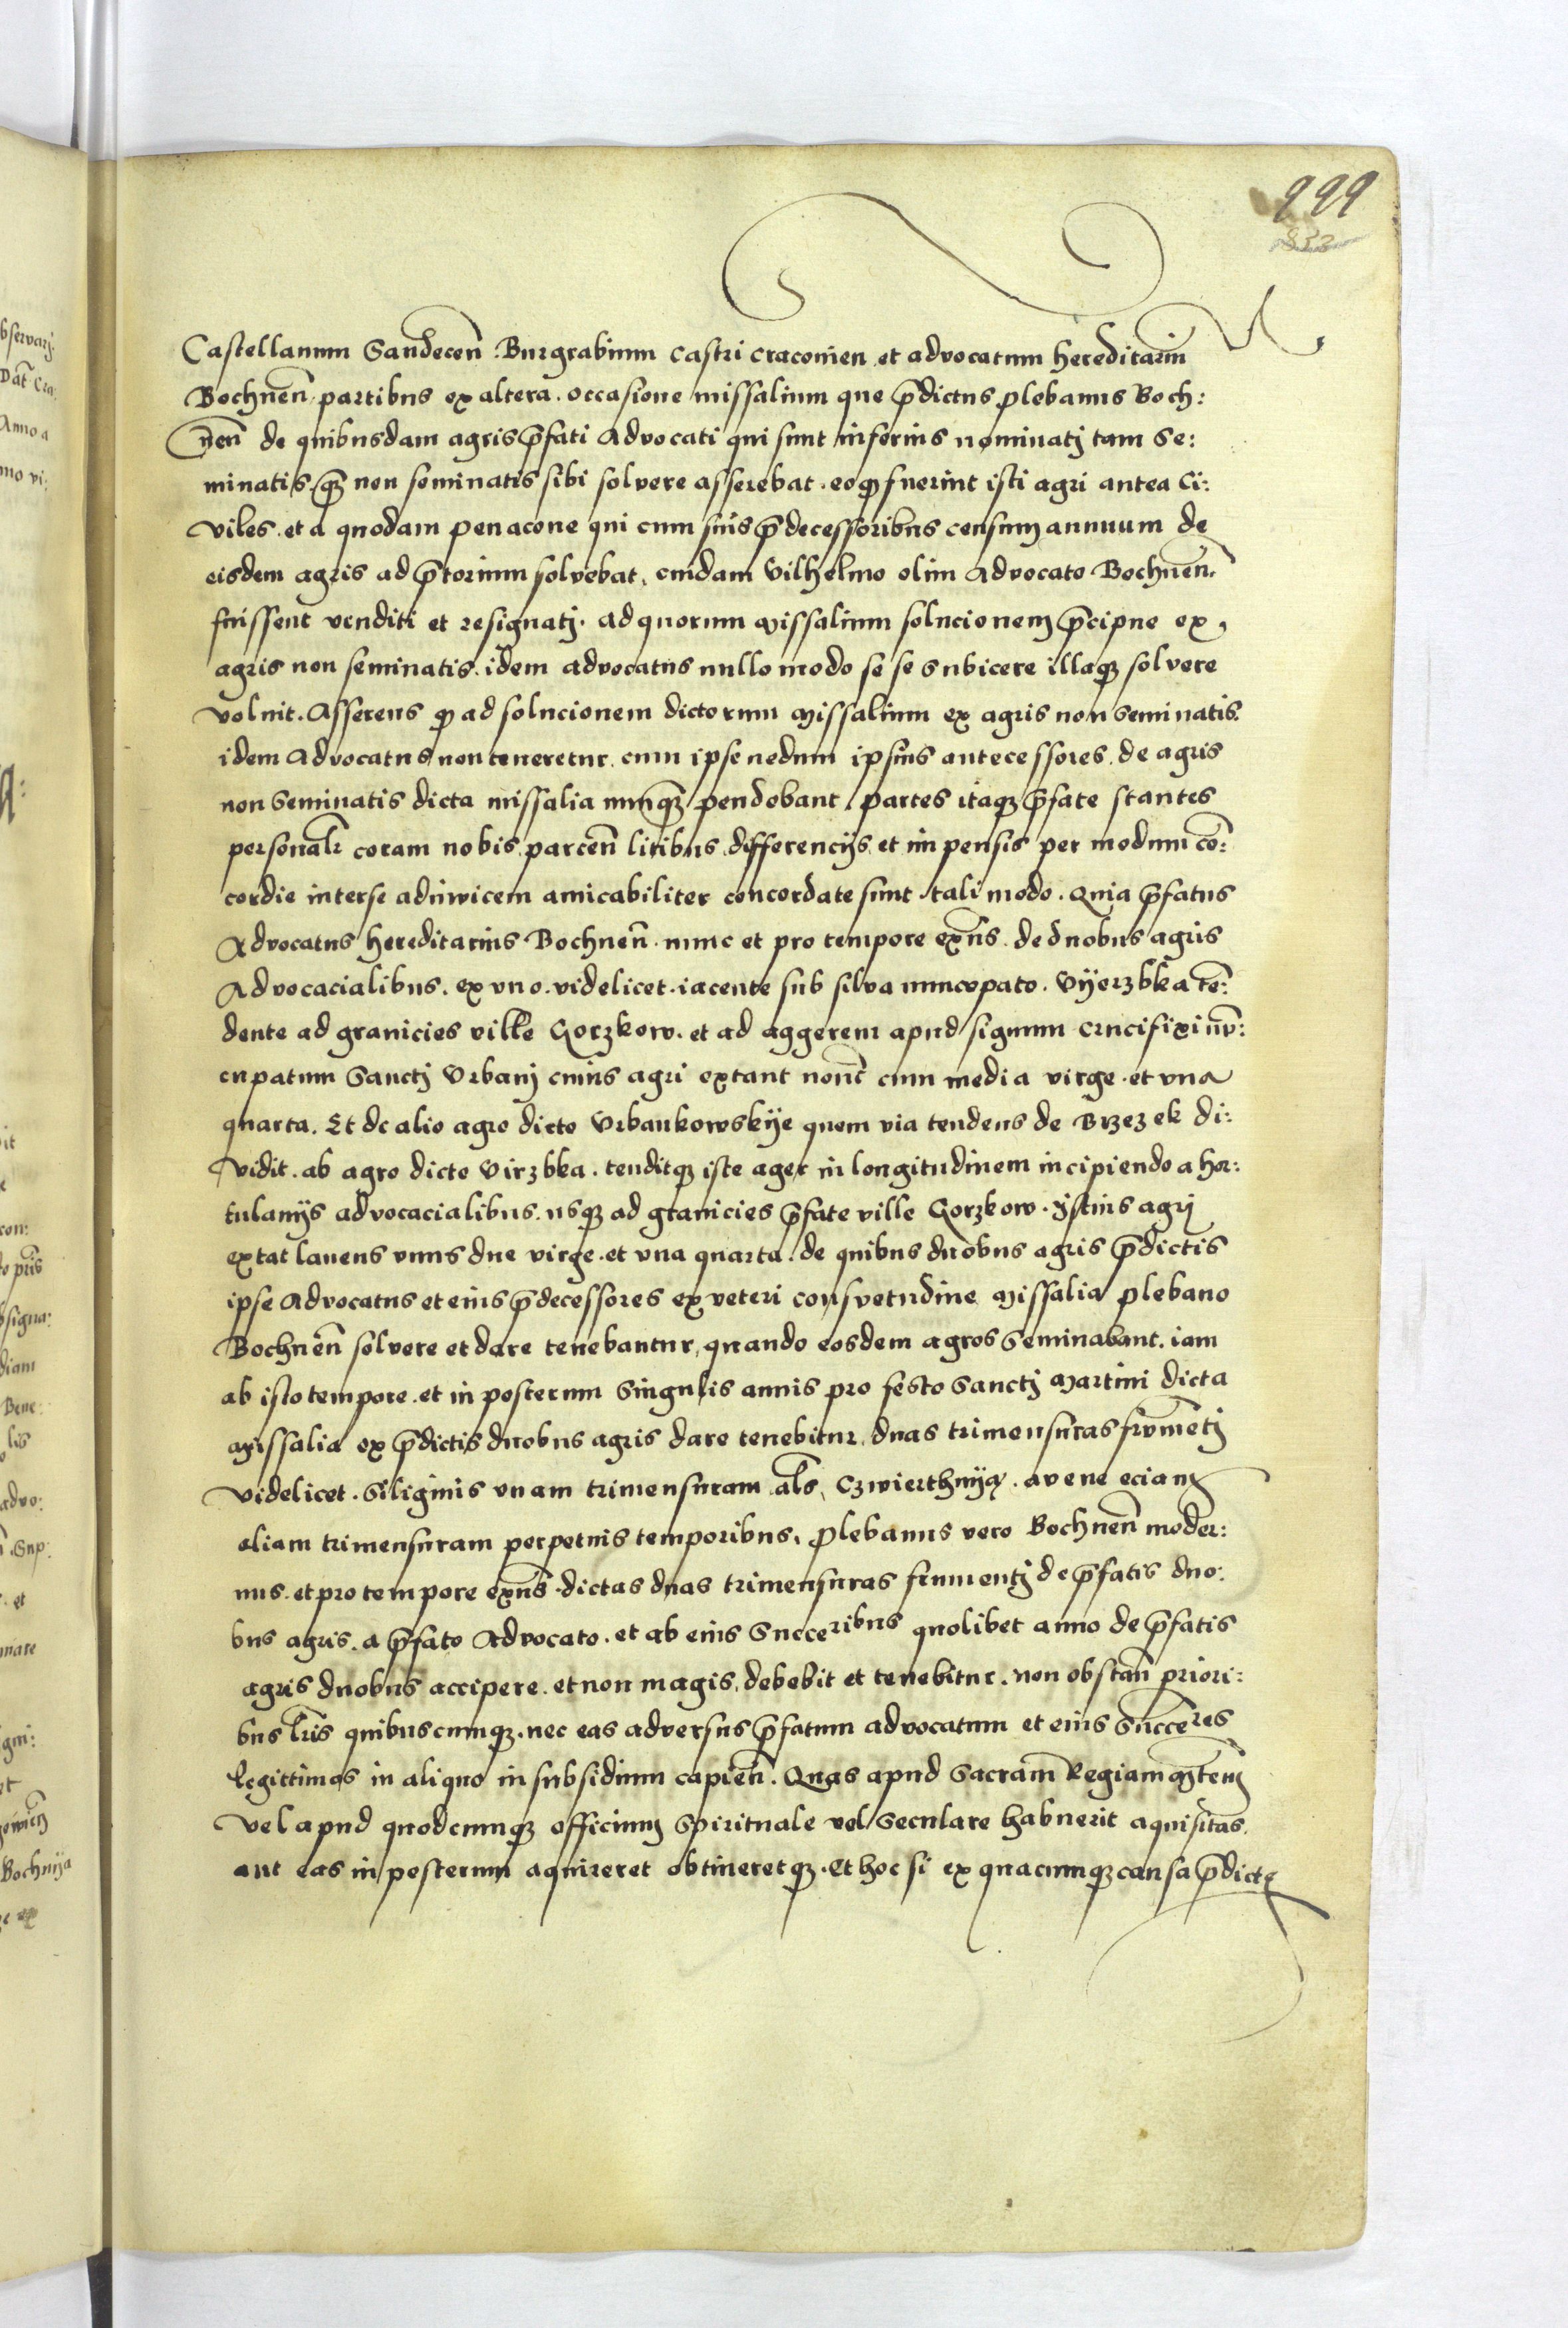 999
832
Castellanum Sandecen̄ Burgrabium castri cracouien et advocatum hereditariū
Bochnen̄ partibus ex altera. occasione missalium que p̄dictus plebanus Boch:
nen̄ de quibusdam agris p̄fati Advocati qui sunt inferius nominatj tam Se:
minatis q̄ȝ non seminatis sibi solvere asserebat. eo ꝙ fuerint isti agri antea Ci:
viles. et a quodam penacone qui cum suis p̄decessoribus censum annuum de
eisdem agris ad p̄torium solvebat, cuidam Vilhelmo olim Advocato Bochnen̄.
fuissent venditi et resignatj. ad quorum missalium solucionem p̄cipue ex,
agris non seminatis. idem advocatus nullo modo se se subicere illaqȝ solvere
voluit. Asserens ꝙ ad solucionem dictorum missalium ex agris non seminatis.
idem Advocatus non teneretur. cum ipse nedum ipsius antecessores. de agris
non Seminatis dicta missalia nunq̄ȝ pendebant. partes itaqȝ p̄fate stantes
personalr̄ coram nobis parcen̄ litibus differencijs et impensis per modum cō:
cordie interse adinvicem amicabiliter concordate sunt tali modo. Quia p̄fatus
Advocatus hereditarius Bochnen̄. nunc et pro tempore exn̄s. de duobus agris
Advocacialibus. ex vno. videlicet. iacente sub silva nuncupato. Vÿerzbka tē:
dente ad granicies ville Gorzkow. et ad aggerem apud signum crucifixi nū:
cupatum Sanctj Vrbanj cuius agri extant nouē cum media virge. et vna
quarta. Et de alio agro dicto Vrbankowskÿe quem via tendens de Brzezek di:
vidit. ab agro dicto Virzbka. tenditqȝ iste ager in longitudinem incipiendo a hor:
tulanijs advocacialibus. usqȝ ad granicies p̄fate ville Gorzkow. Istius agrj
extat laneus vnus due virge. et vna quarta. de quibus duobus agris p̄dictis
ipse Advocatus et eius p̄decessores ex veteri consvetudine missalia plebano
Bochnen̄ solvere et dare tenebantur, quando eosdem agros seminabant. iam
ab isto tempore. et in posterum Singulis annis pro festo Sanctj Martini dicta
missalia ex p̄dictis duobus agris dare tenebitur, duas trimensuras frumētj
videlicet. Siliginis vnam trimensuram al̄s, Czwierthnÿą. avene eciam
aliam trimensuram perpetuis temporibus. Plebanus vero Bochnen̄ moder:
nus. et pro tempore exn̄s. dictas duas trimensuras frumentj de p̄fatis duo:
bus agris. a p̄fato Advocato. et ab eius Succeribus quolibet anno de p̄fatis
agris duobus accipere. et non magis. debebit et tenebitur. non obstan̄ priori:
bus l̄ris quibuscumqȝ. nec eas adversus p̄fatum advocatum et eius Succeres
legittimos in aliquo in subsidium capien̄. Quas apud Sacram̄ Regiam Mtem̄
vel apud quodcumqȝ officium Spirituale vel Seculare habuerit aquisitas.
aut eas in posterum aquireret obtineretqȝ. Et hoc si ex quacumqȝ causa p̄dictę